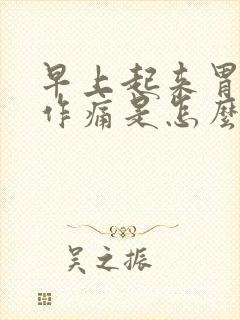 早上起来胃
作痛是怎麼
吴之振